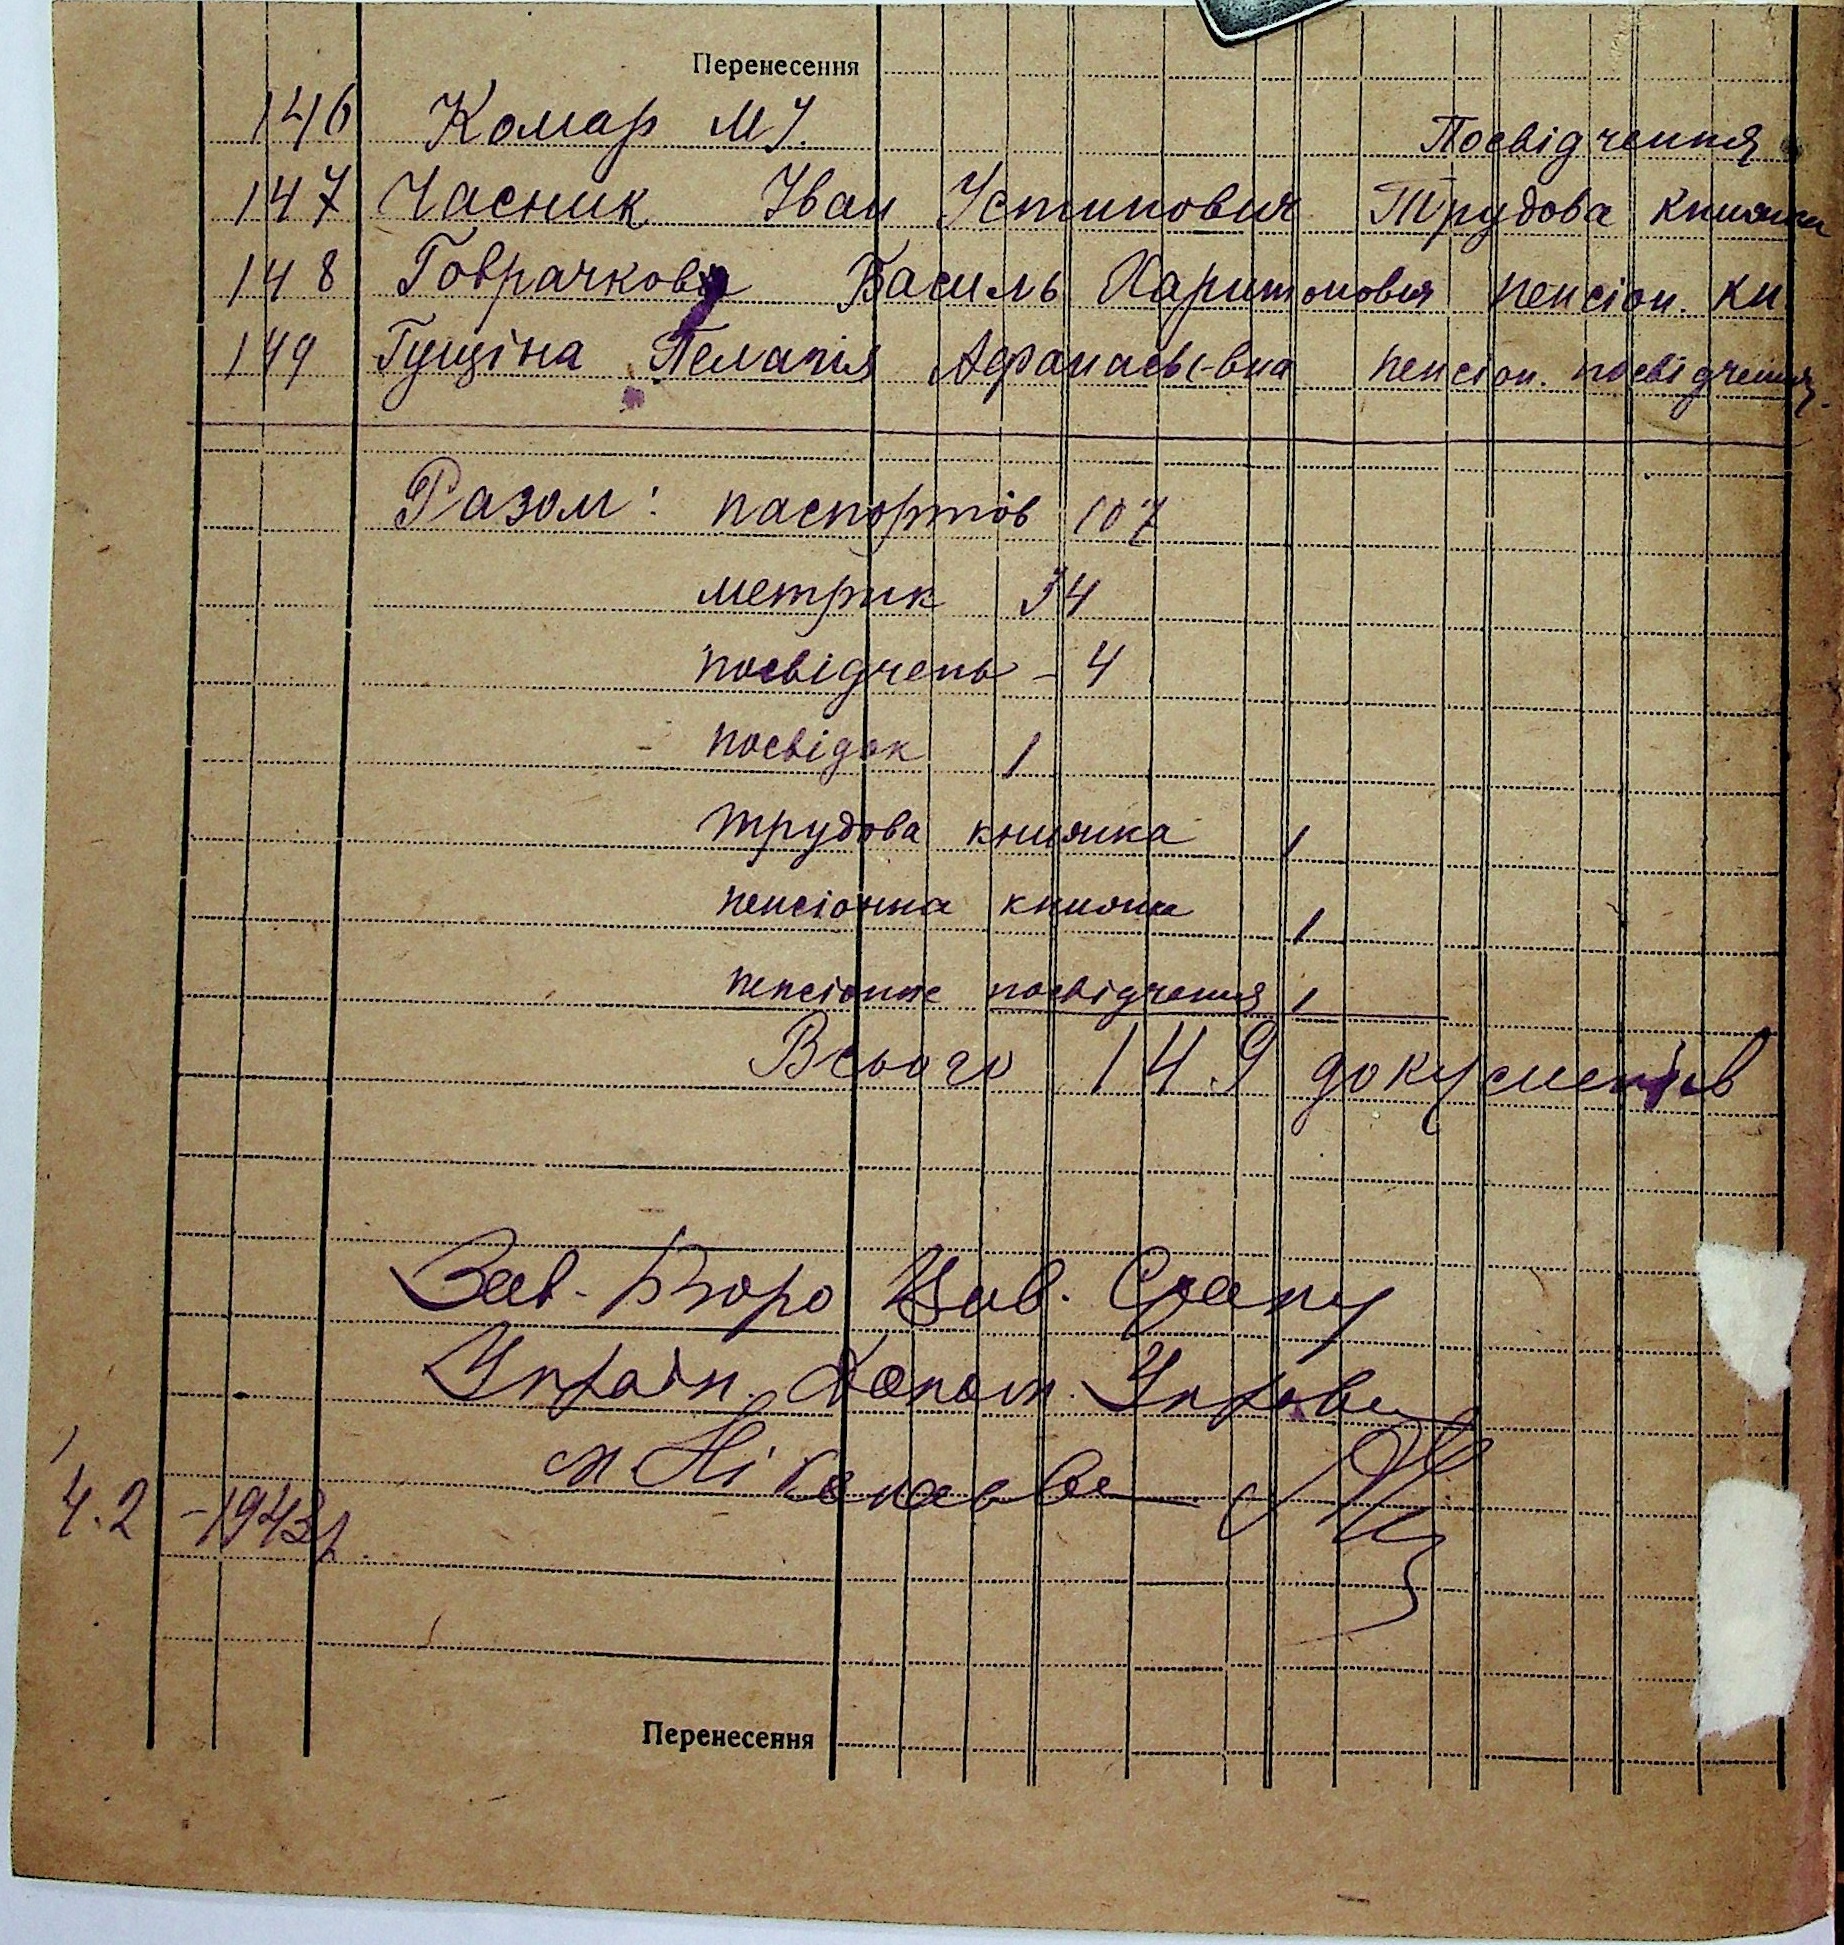 Перенесення
146 Комар М У. Посвідчення
147 Часник Іван Устинович Трудова книжка
148 Василь Харитонович пенсіон. кн
149 Гущіна Пелагія Афанасьєвна пенсіон. посвідчення
Разом: паспортів 107
метрик 34
посвідчень - 4
посвідок 1
трудова книжка 1
пенсіонна книжка 1
пенсіонне посвідчення 1
Всього 149 документів
Зав. Бюро Цив. Стану
Україн. Допом. Управи
м Ніколаєва
4.2 -1943р.
Перенесення